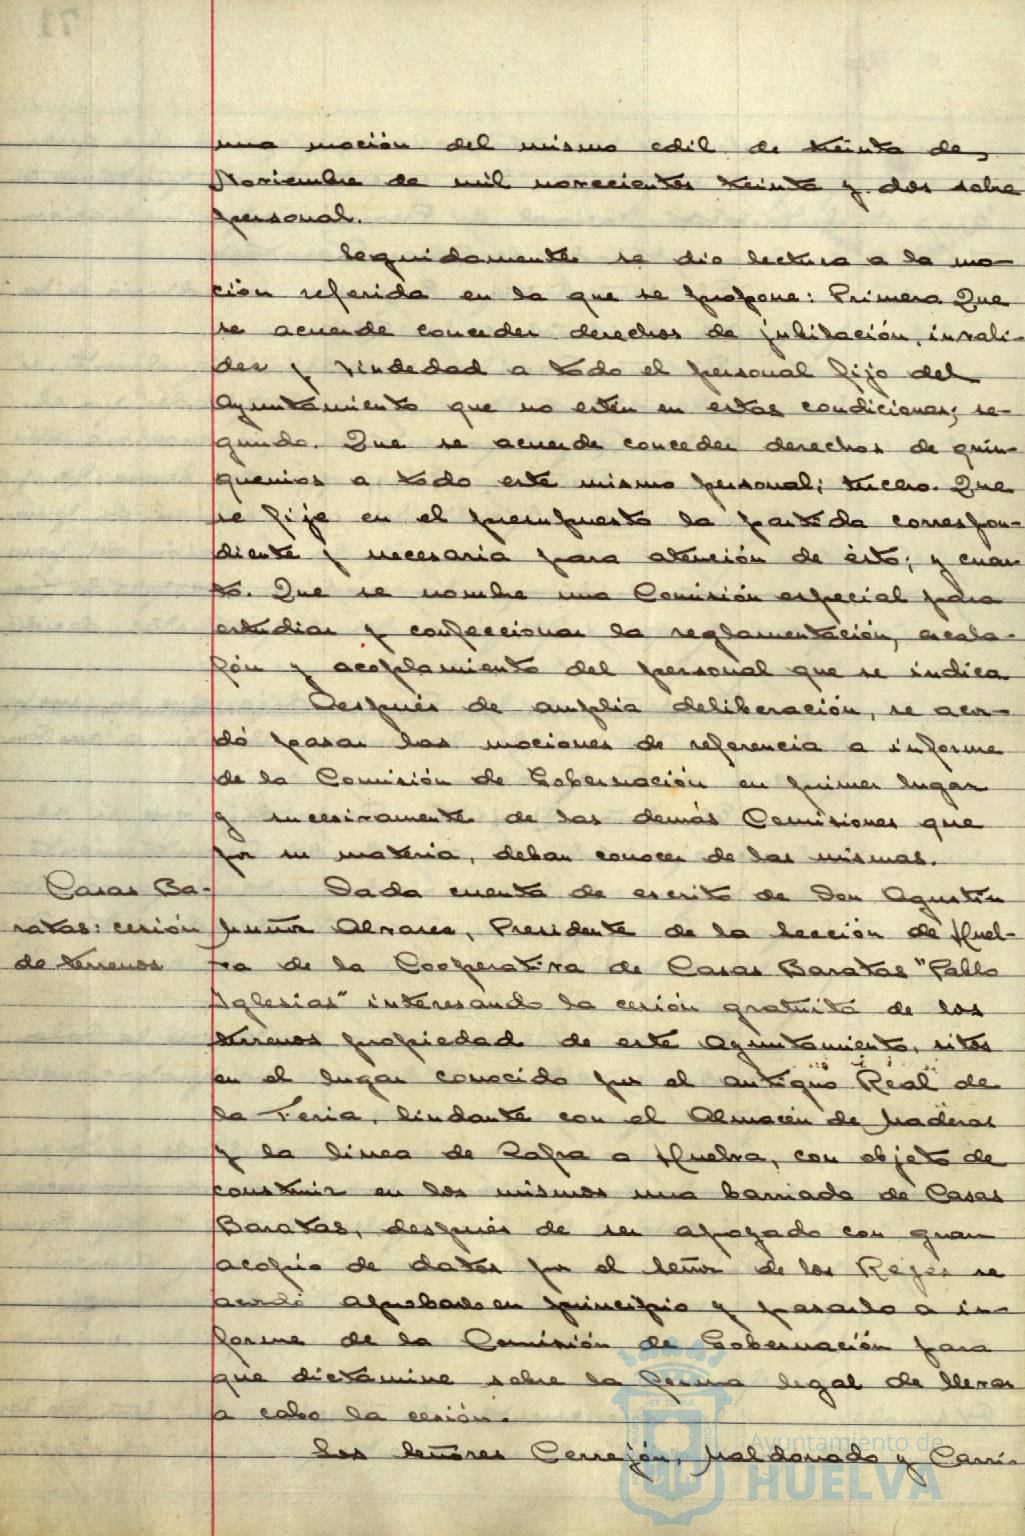 una moción del mismo edil de treinta de
Noviembre de mil novecientos treinta y dos sobre
personal.
Seguidamente se dio lectura a la mo-
ción referida en la que se propone: Primero Que
se acuerde conceder derechos de jubilación, invali-
dez y viudedad a todo el personal fijo del
Ayuntamiento que no estén en estas condiciones; se-
gundo. Que se acuerde conceder derechos de quin-
quenios a todo este mismo personal; tercero. Que
se fije en el presupuesto la partida correspon-
diente y necesaria para atención de ésto; y cuar-
to. Que se nombre una Comisión especial para
estudiar y confeccionar la reglamentación, escala-
fón y acoplamiento del personal que se indica
Después de amplia deliberación, se acor-
dó pasar las mociones de referencia a informe
de la Comisión de Gobernación en primer lugar
y sucesivamente de las demás Comisiones que
por su materia, deban conocer de las mismas.
Casas Ba-
ratas: cesión
de terrenos
Dada cuenta de escrito de Don Agustín
Muñoz Alvarez, Presidente de la Sección de Huel-
va de la Cooperativa de Casas Baratas "Pablo
Iglesias" interesando la cesión gratuita de los
terrenos propiedad de este Ayuntamiento, sitos
en el lugar conocido por el antiguo Real de
la Feria, lindante con el Almacén de Maderas
y la línea de Zafra a Huelva, con objeto de
construir en los mismos una barriada de Casas
Baratas, después de ser apoyado con gran
acopio de datos por el Señor de los Reyes se
acordó aprobarlo en principio y pasarlo a in-
forme de la Comisión de Gobernación para
que dictamine sobre la forma legal de llevar
a cabo la cesión.
Los Señores Cerrejón, Maldonado y Carri-
Ayuntamiento de
HUELVA